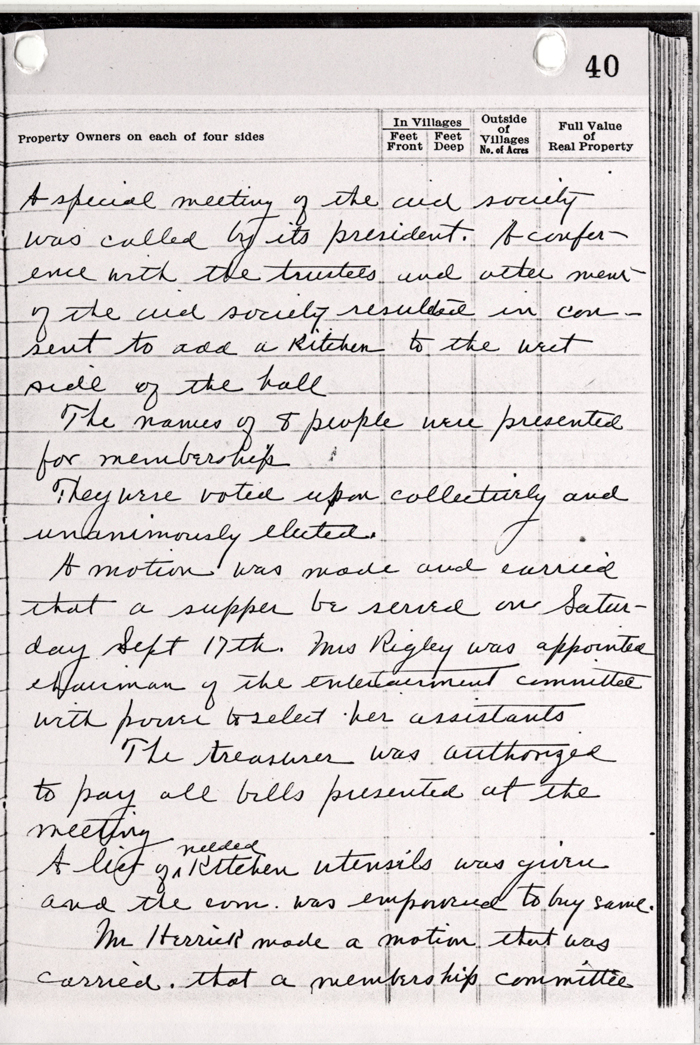 40
Property Owners on each of four sides
In Villages
Feet Front
Feet Deep
Outside of Villages No. of Acres
Full Value of Real Property
A special meeting of the aid society
was called by its president. A confer-
ence with the trustees and other mem-
of the aid society resulted in con-
sent to add a kitchen to the west
side of the hall
The names of 8 people were presented
for membership
They were voted upon collectively and
unanimously elected.
A motion was made and carried
that a supper be served on Satur-
day Sept 17th. Mrs Rigley was appointed
chairman of the entertainment committee
with power to select her assistants
The treasurer was authorized
to pay all bills presented at the
meeting
A list of needed Kitchen utensils was given
and the com. was empowered to buy same.
Mr Herrick made a motion that was
carried. that a membership committee